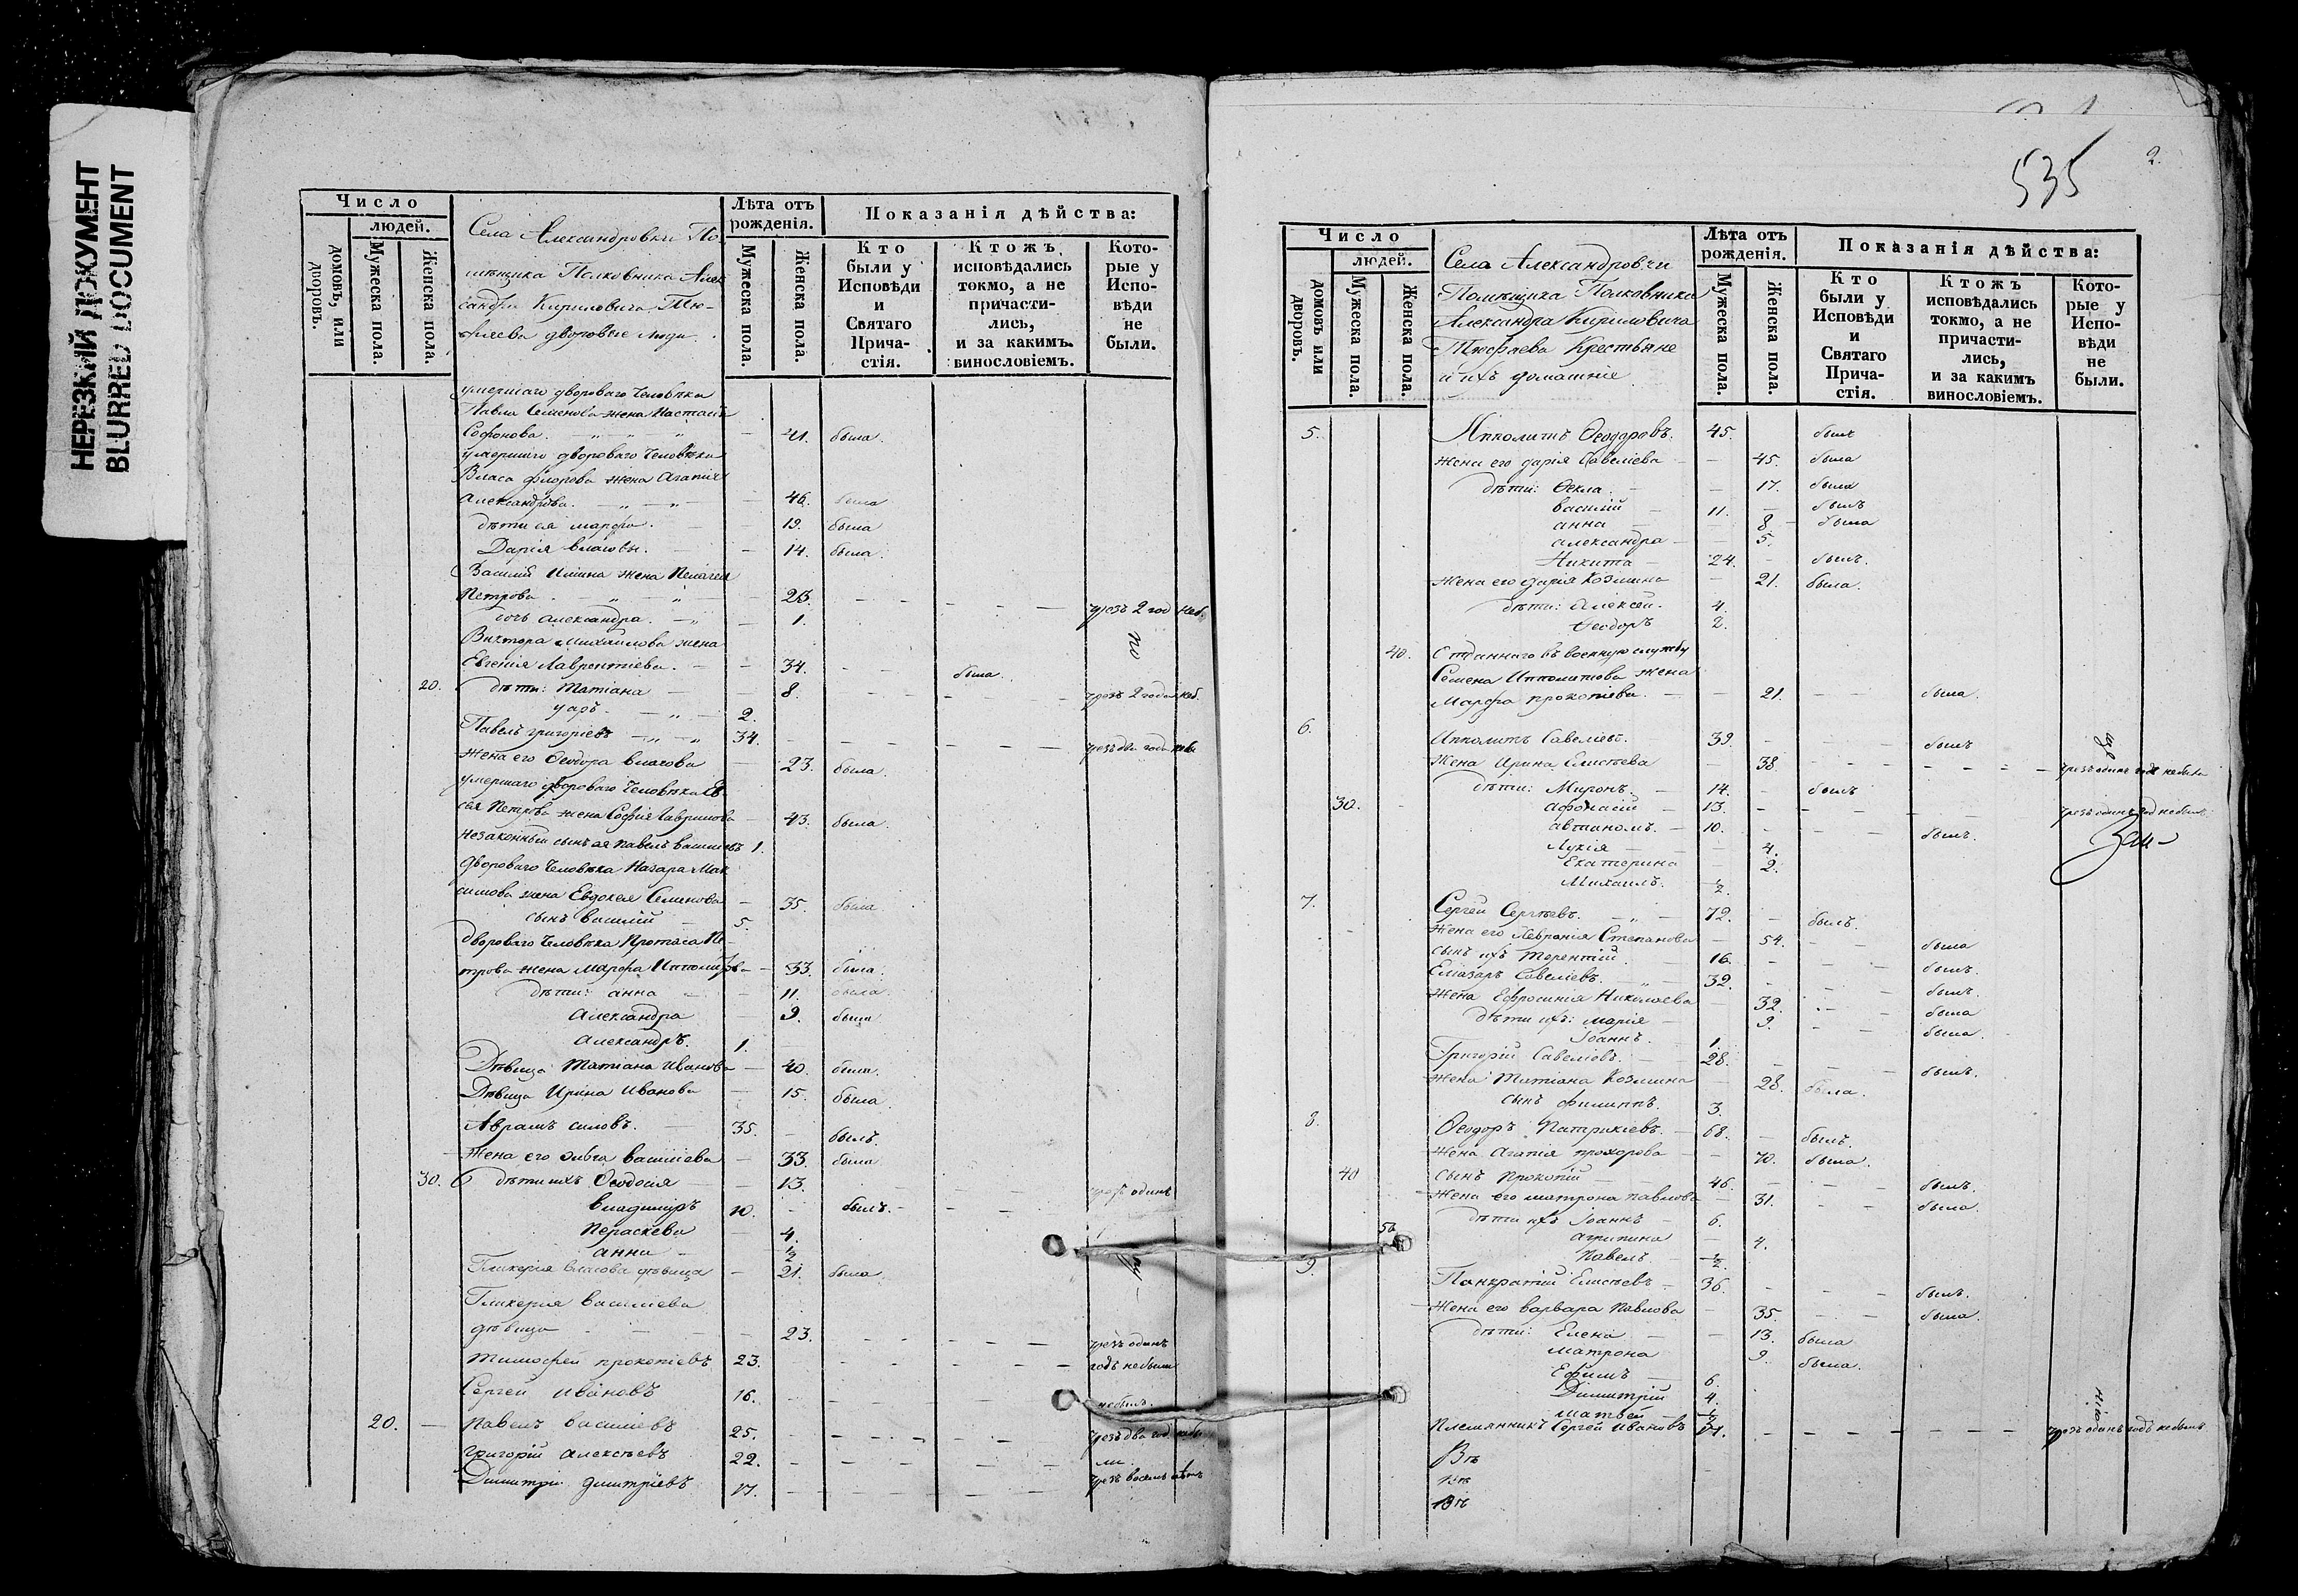 НЕРЕЗКИЙ ДОКУМЕНТ
BLURRED DOCUMENT
Число
людей.
домовъ, или дворовъ.
Мужеска пола.
Женска пола.
Села Александровки По-
мѣщика Полковника Алек
сандра Кириловича Тю-
фяева дворовые люди.
Лѣта отъ рожденія.
Мужеска пола.
Женска пола.
Показанія дѣйства:
Кто были у Исповѣди и Святаго Прича-стія.
Ктожъ исповѣдались токмо, а не причасти-лись, и за какимъ винословіемъ.
Кото-рые у Испо-вѣди не были.
умершаго двороваго человѣка
Павла Семенова жена Настасія
Софонова. — 41. была.
умершаго двороваго человѣка
Власа Флорова жена Агапия
Александрова. — 46. была
дѣти ея Марфа. — 19. была
Дарія Власовы. — 14. была.
Василія Илина жена Пелагея
Петрова — 23. — чрезъ 2 год неб.
дочь Александра. — 1.
Виктора Михайлова жена
Евгения Лаврентіева. — 34. — была.
20. дѣти: Татіана — 8. — чрезъ 2 года неб.
Уаръ. — 2.
Павелъ Григоріевъ — 34. — чрезъ два года неб
жена его Ѳеодора Власова 23. была.
умершаго двороваго человѣка Ев
сея Петрова жена Софія Гаврилова — 43. была.
незаконный сынъ ея Павелъ Васильевъ 1.
двороваго человѣка Назара Мак
симова жена Евдокея Семенова — 35. была.
сынъ Василій — 5.
двороваго человѣка Протаса Пе-
трова жена Марфа Ипполитова — 33. была.
дѣти: Анна — 11. была.
Александра — 9. была
Александръ. 1.
Дѣвица Татіана Иванова — 40. была.
Дѣвица Ирина Иванова — 15. была.
Аврамъ Силовъ. — 35. — былъ.
Жена его Ольга Васильева — 33. была
30. дѣти ихъ Ѳеодосія — 13. — чрезъ одинъ
Владимиръ 10. — былъ. —
Параскева — 4.
Анна — ½
Гликерия Власова дѣвица — 21. была.
Гликерия Васильева
дѣвица — 23. — чрезъ одинъ
Тимофей Прокопіевъ 23. — годъ небыли
Сергей Ивановъ 16. — небылъ.
20. — Павелъ Васильевъ 25. — чрезъ два год. небы
Григорій Алексѣевъ 22. — ли.
Димитрій Дмитріевъ 17. — чрезъ восемь лѣтъ
535
2.
Число
людей.
домовъ или дворовъ.
Мужеска пола.
Женска пола.
Села Александровки
Помѣщика Полковника
Александра Кириловича
Тюфяева Крестьяне
и ихъ домашніе
Лѣта отъ рожденія.
Мужеска пола.
Женска пола.
Показанія дѣйства:
Кто были у Исповѣди и Святаго Прича-стія.
Ктожъ исповѣдались токмо, а не причасти-лись, и за какимъ винословіемъ.
Кото-рые у Испо-вѣди не были.
5. Ипполитъ Ѳеодоровъ. 45. былъ
жена его Дарія Савеліева — 45. была
дѣти: Ѳекла. — 17. была
Василій — 11. — былъ
Анна — 8 — была
Александра — 5.
Никита — 24. — былъ.
жена его Дарія Козмина — 21. была.
дѣти: Алексей. 4.
Ѳеодоръ 2.
40. Отданнаго въ военную службу
Семена Ипполитова жена
Марфа Прокопіева. — 21. — была.
6. Ипполитъ Савеліевъ. — 39. — былъ
Жена Ирина Елисѣева 38. — чрезъ одинъ годъ небыла
дѣти: Миронъ. — 14. — былъ
30. Афонасій — 13. — чрезъ одинъ год небылъ
Автаномъ. — 10. — былъ.
Лукія — 4.
Екатерина — 2.
Михаилъ. ½.
7. Сергей Сергѣевъ. — 72. — былъ.
жена его Февронія Степанова — 54. — была
сынъ ихъ Терентій. 16. — былъ.
Елиазаръ Савеліевъ. — 32. — былъ.
жена Ефросинія Николаева 32. — была
дѣти ихъ: Марія — 9. — была.
Іоаннъ. 1.
Григорій Савеліевъ. — 28. — былъ.
жена Татіана Козмина — 28. была.
сынъ Филиппъ. 3.
8. Ѳеодоръ Патрикіевъ. — 68. — былъ.
жена Агапия Прохорова — 70. была.
40 сынъ Прокопій — 46. — былъ.
жена его Матрона Павлова — 31. — была.
дѣти ихъ Іоаннъ — 6.
50. Агрипина — 4.
Павелъ — ½.
9. Панкратій Елисѣевъ — 36. — былъ.
жена его Варвара Павлова — 35. — была.
дѣти: Елена — 13. была
Матрона 9. была.
Ефимъ — 6.
Димитрій 4.
Матвей — ½
Племянникъ Сергей Ивановъ 17. — чрезъ одинъ годъ небылъ